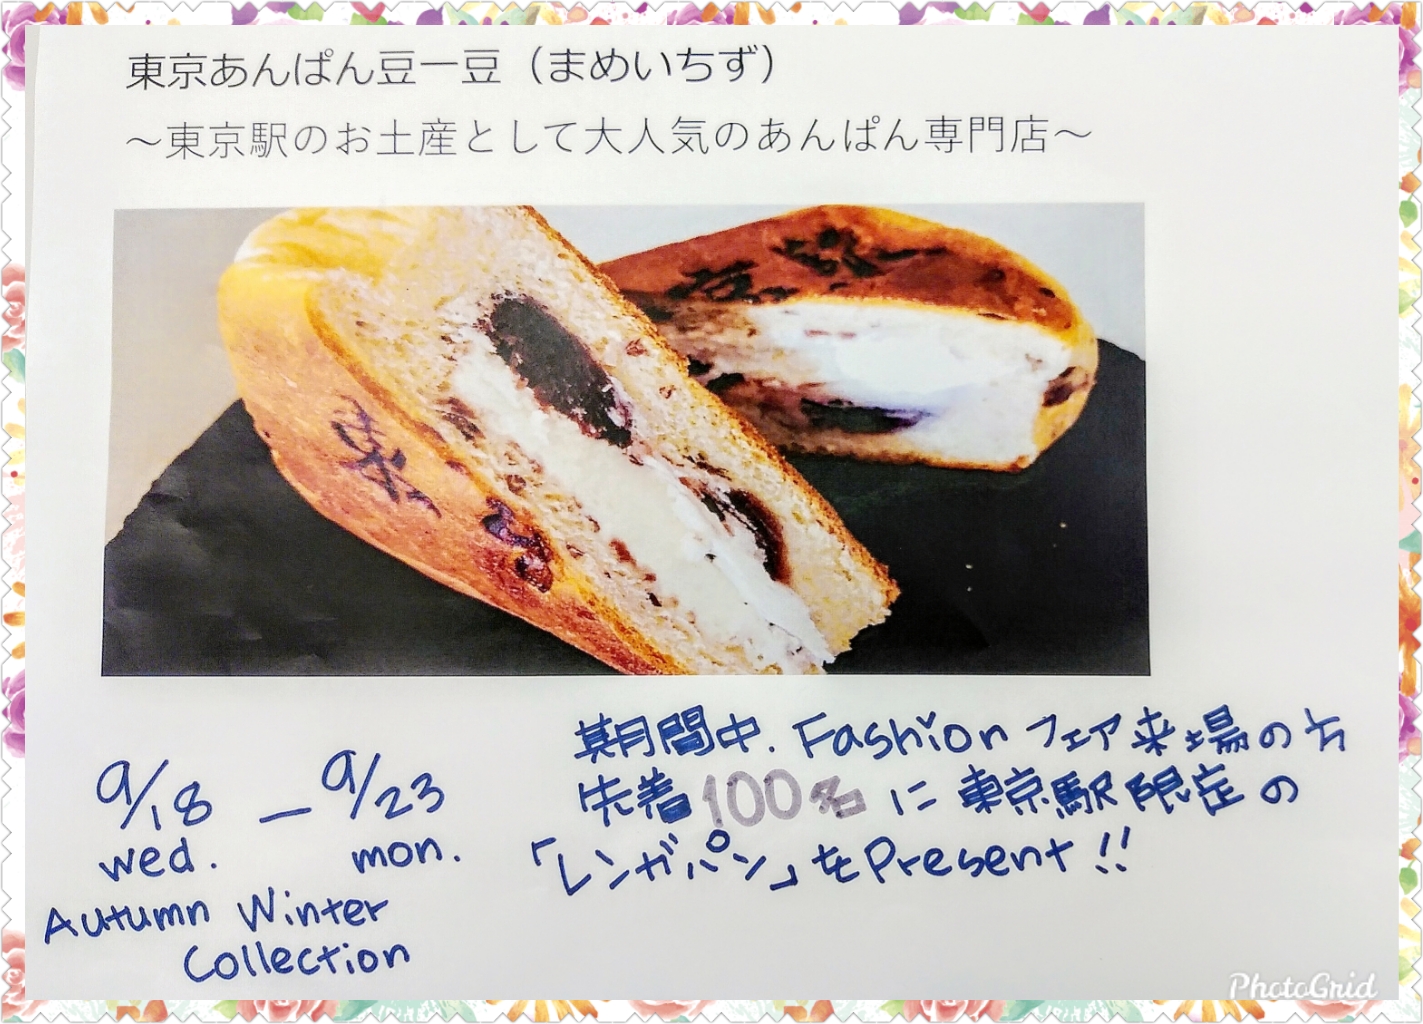 東京あんぱん豆一豆（まめいちず）
～東京駅のお土産として大人気のあんぱん専門店～
東京
京駅
9/18 — 9/23
wed. mon.
Autumn Winter
Collection
期間中. Fashion フェア来場の方
先着100名に東京駅限定の
「レンガパン」をPresent!!
PhotoGrid